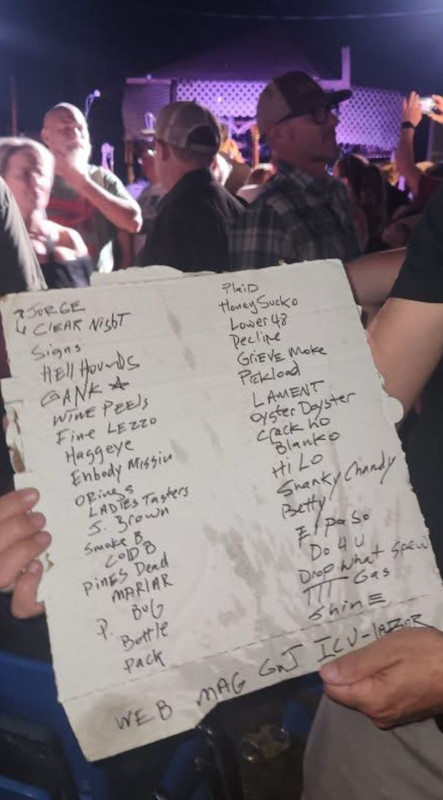 SURGE
4 CLEAR NIGHT
Signs
HELL HOUNDS
GANK ★
WINE PEELS
Fine LEZZO
Haggeye
Enbody Missin
LADIES TASTERS
J. Brown
Smoke B
COLD B
PINES Dead
MARIAR
BUG
P. Bottle
Pack
PlaiD
Honey Sucko
Lower 48
Decline
GriEVE Moke
PCKload
LAMENT
Oyster Doyster
Crack ho
Blanko
Hi Lo
Shanky Chandy
Betty
El paso
Do 4 U
Drop What
Gas
ShinE
WEB MAG GNJ ICU-